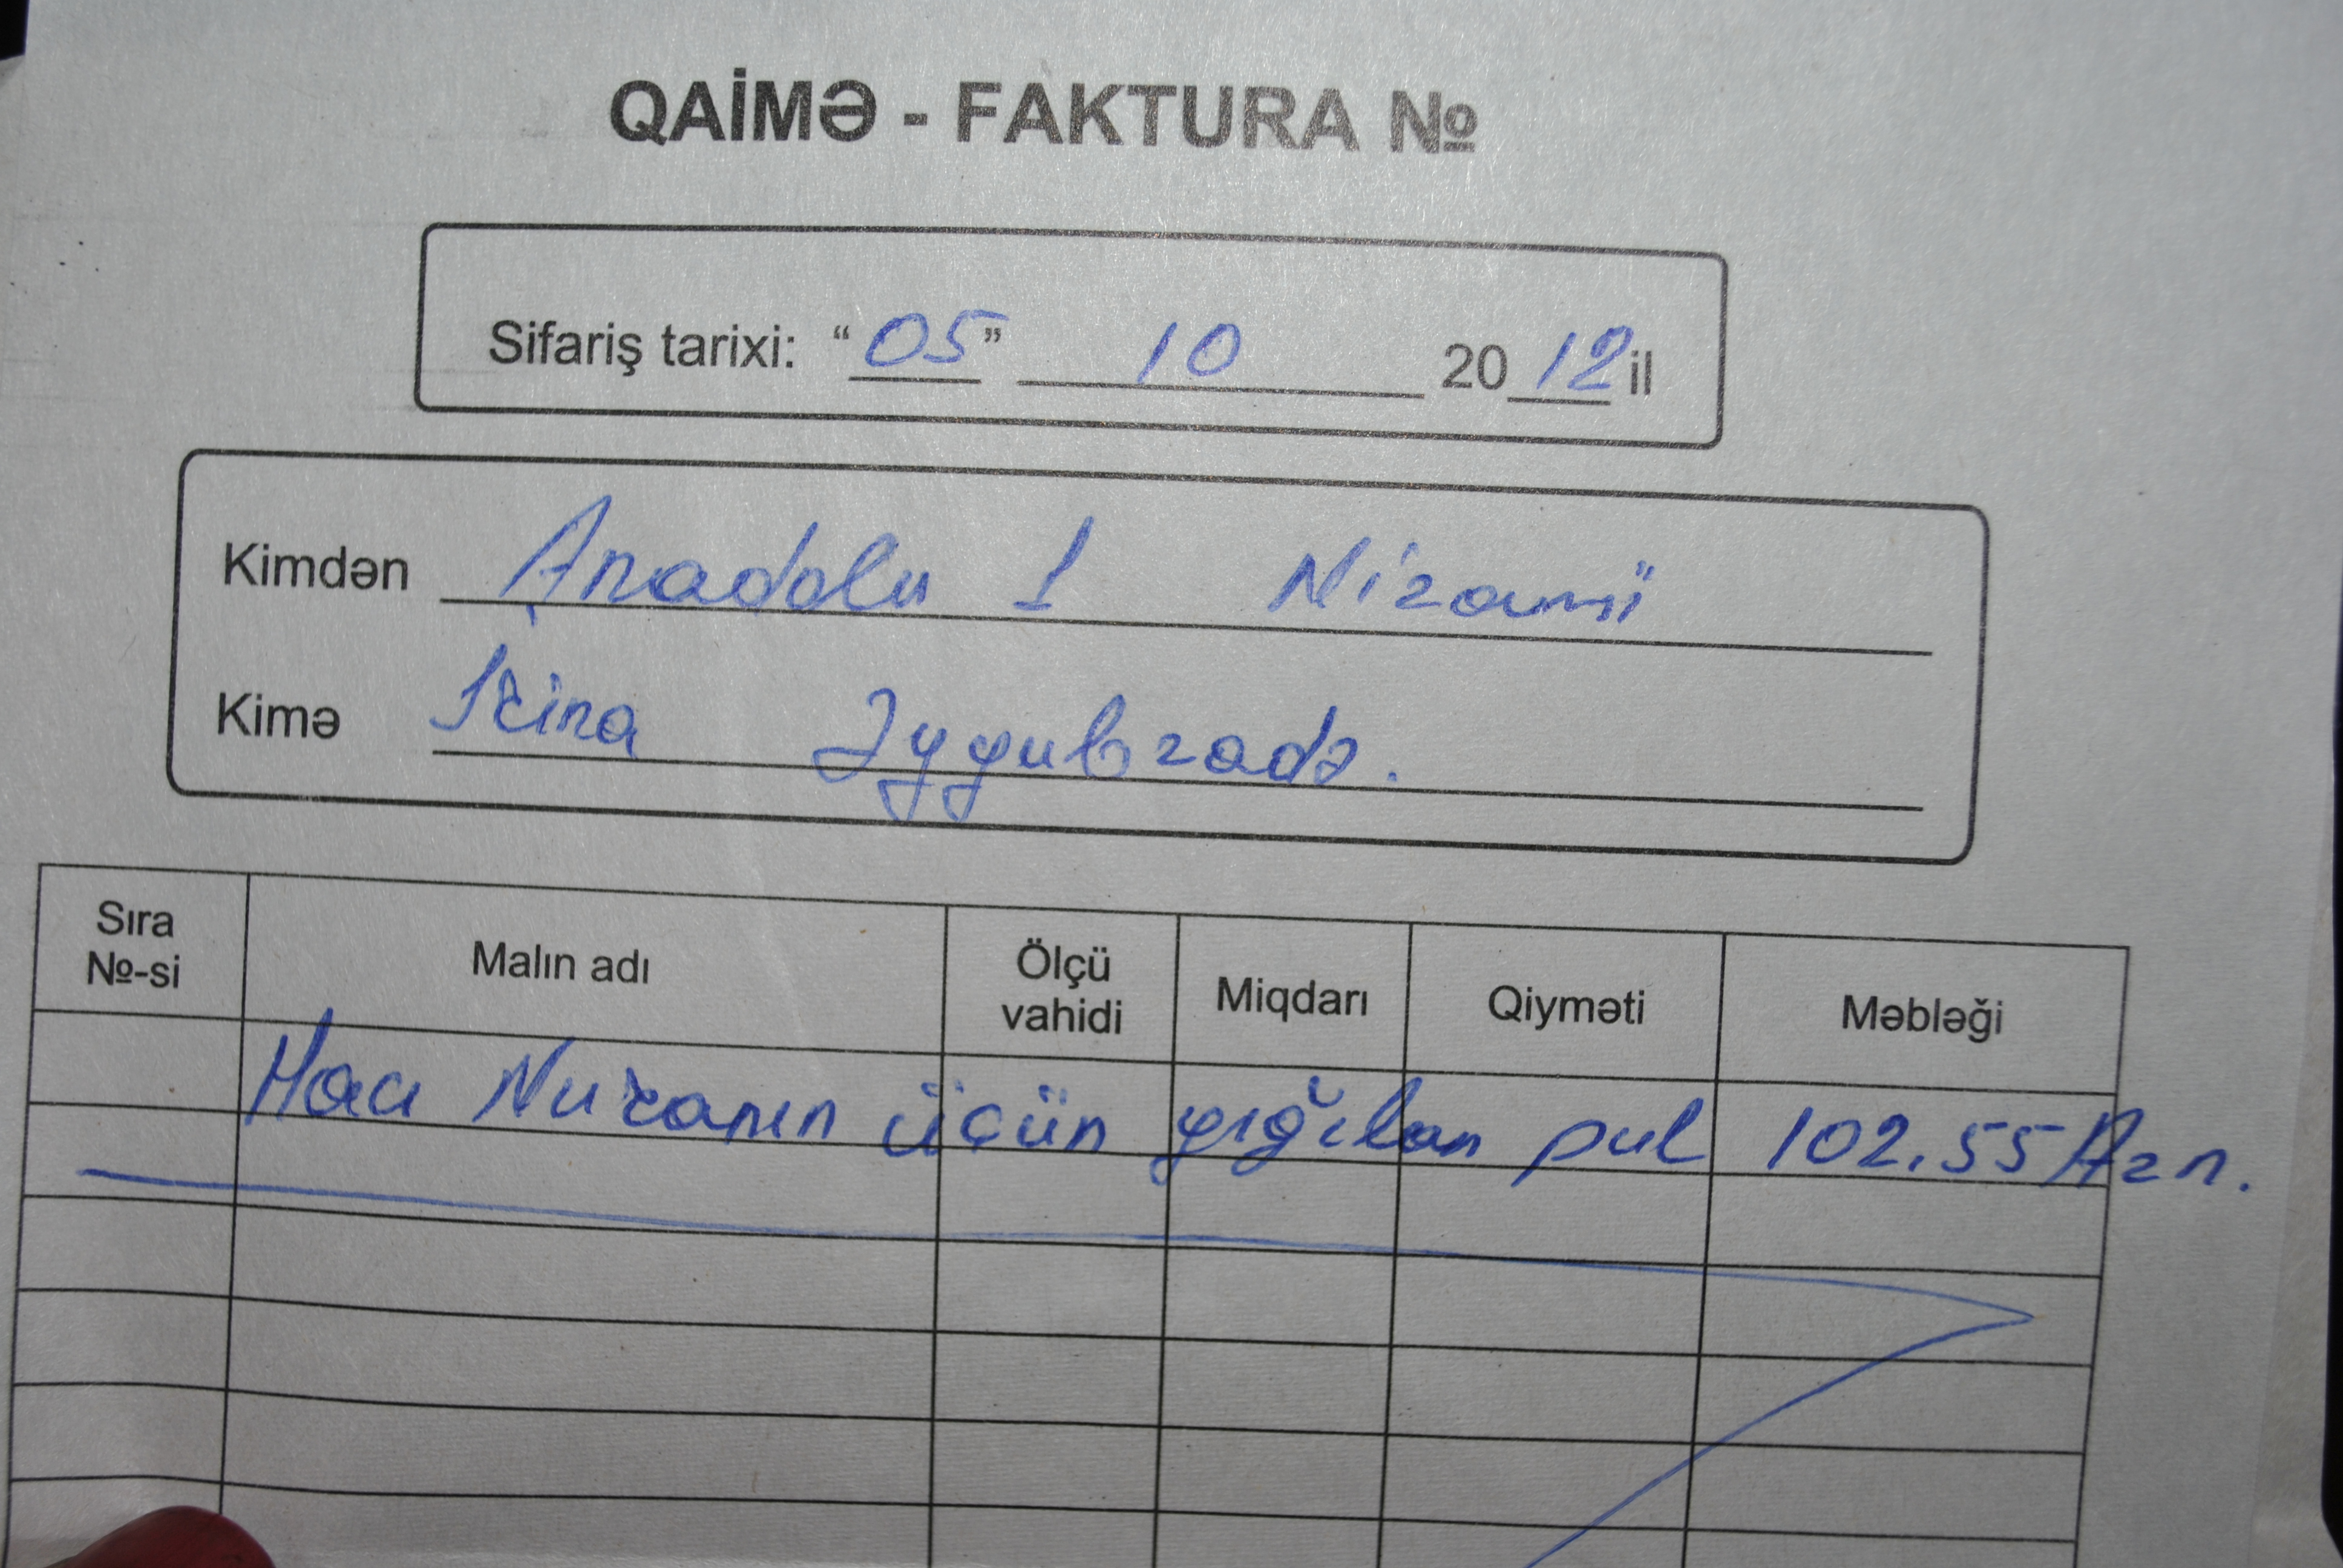 QAİMƏ - FAKTURA №
Sifariş tarixi: “05” 10 2012 il
Kimdən Anadolu 1 Nizami
Kimə İrina Əyyubzadə.
Sıra №-si Malın adı Ölçü vahidi Miqdarı Qiyməti Məbləği
Hacı Nuranın üçün yığılan pul 102.55 Azn.